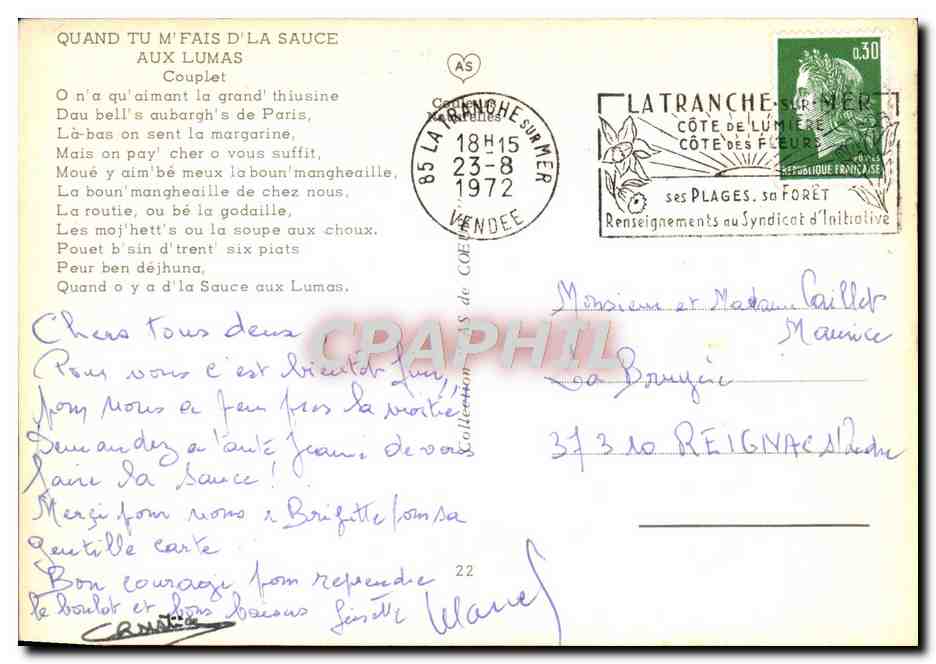 QUAND TU M'FAIS D'LA SAUCE
AUX LUMAS
Couplet
O n'a qu'aimant la grand' thiusine
Dau bell's aubargh's de Paris,
Là-bas on sent la margarine,
Mais on pay' cher o vous suffit,
Moué y aim'bé meux la boun'mangheaille,
La boun'mangheaille de chez nous,
La routie, ou bé la godaille,
Les moj'hett's ou la soupe aux choux.
Pouet b'sin d'trent' six piats
Peur ben déjhuna,
Quand o y a d'la Sauce aux Lumas.
AS
Couleurs
Naturelles
85 LA TRANCHE SUR MER
18H15
23-8
1972
VENDEE
LA TRANCHE-SUR-MER
CÔTE DE LUMIÈRE
CÔTE DES FLEURS
ses PLAGES. sa FORÊT
Renseignements au Syndicat d'Initiative
0,30
POSTES
REPUBLIQUE FRANÇAISE
Collection AS de COEUR
CPAPHIL
Chers tous deux
Pour vous c'est bientôt fini,
pour nous a peu près la moitié
Demandez a tante Jeanne de vous
faire la sauce !
Merçi pour nous a Brigitte pour sa
gentille carte
Bon courage pour reprendre
le boulot et bons baisers Ginette
Monsieur et Madame Caillet
Maurice
La Bruyère
37310 REIGNAC s/ Indre
22